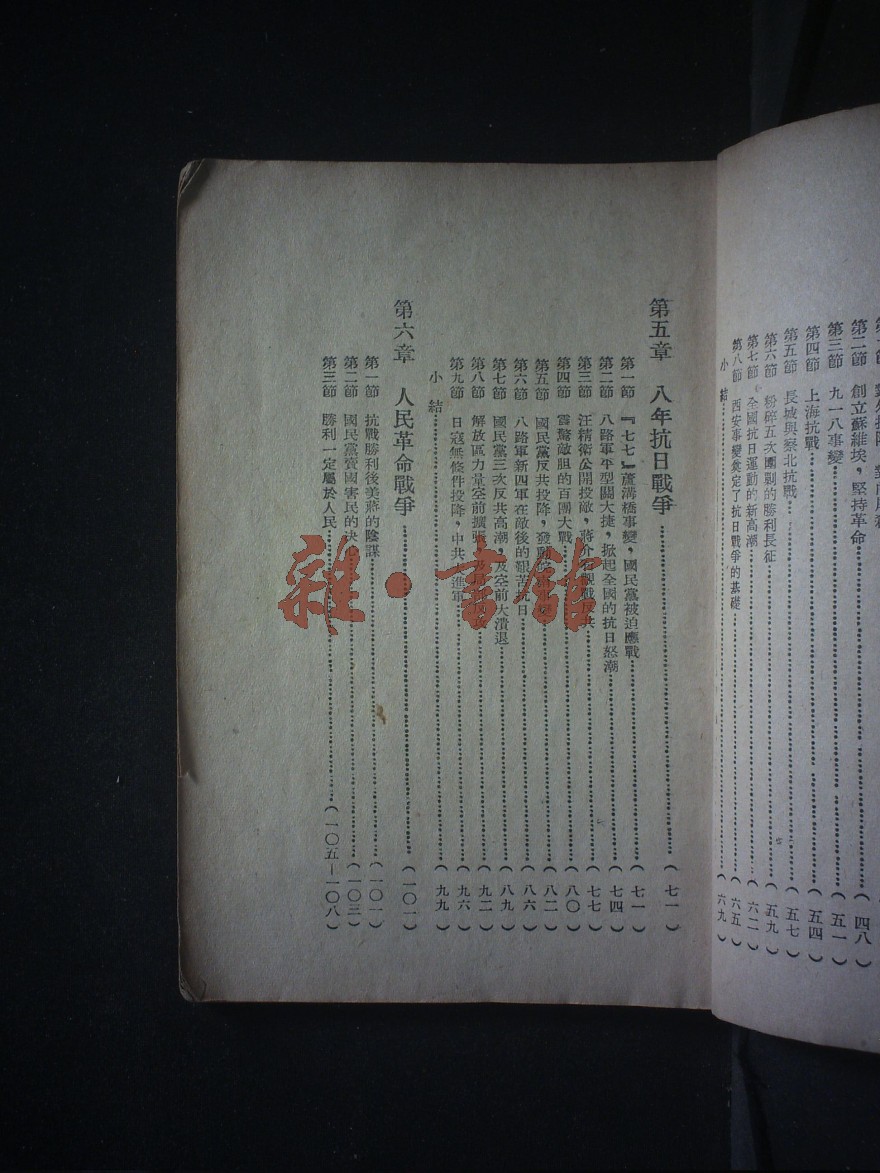 第二節 創立蘇維埃，堅持革命（四八）
第三節 九一八事變（五一）
第四節 上海抗戰（五四）
第五節 長城與察北抗戰（五七）
第六節 粉碎五次圍剿的勝利長征（五九）
第七節 全國抗日運動的新高潮（六二）
第八節 西安事變奠定了抗日戰爭的基礎（六五）
小結（六九）
第五章 八年抗日戰爭（七一）
第一節 『七七』蘆溝橋事變，國民黨被迫應戰（七一）
第二節 八路軍平型關大捷，掀起全國的抗日怒潮（七四）
第三節 汪精衛公開投敵，蔣介石觀戰反共（七七）
第四節 震驚敵胆的百團大戰（八〇）
第五節 國民黨反共投降，發動（八二）
第六節 八路軍新四軍在敵後的艱苦抗日（八六）
第七節 國民黨三次反共高潮，及空前大潰退（八九）
第八節 解放區力量空前擴張（九二）
第九節 日寇無條件投降，中共進軍（九六）
小結（九九）
第六章 人民革命戰爭（一〇一）
第一節 抗戰勝利後美蔣的陰謀（一〇一）
第二節 國民黨賣國害民的決心（一〇三）
第三節 勝利一定屬於人民（一〇五－一〇八）
雜·書館